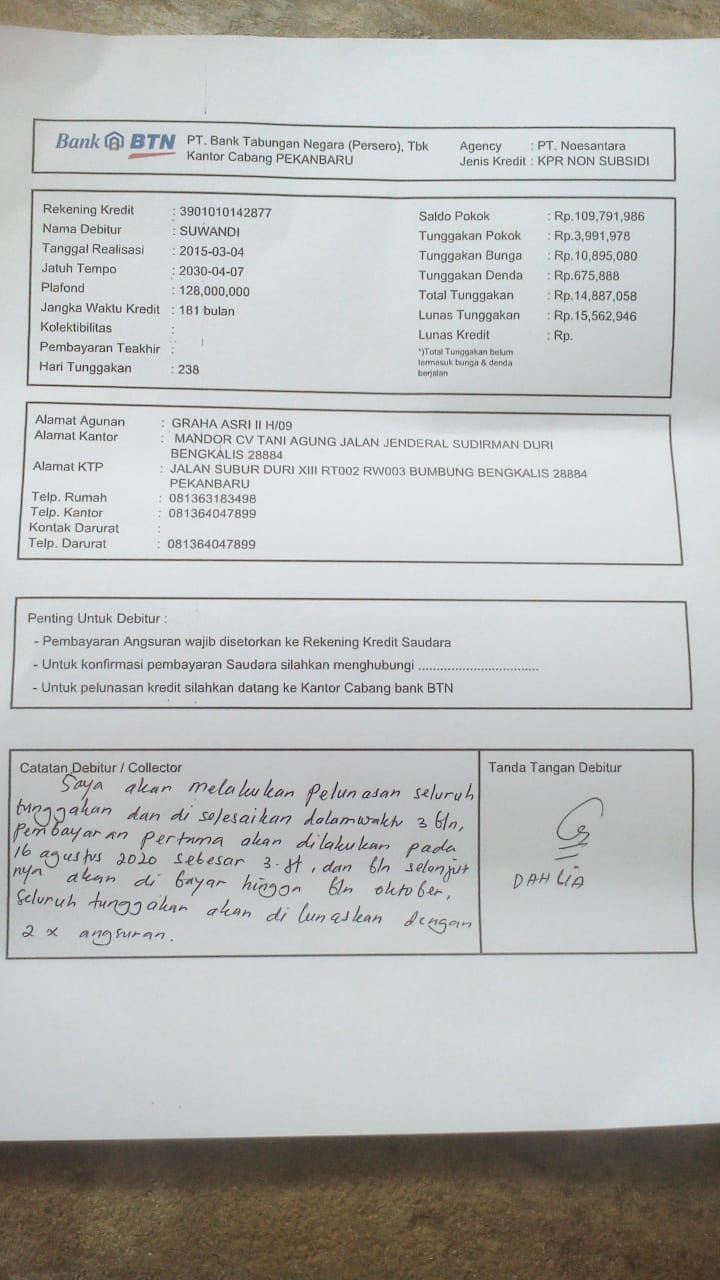 Bank BTN PT. Bank Tabungan Negara (Persero), Tbk
Kantor Cabang PEKANBARU
Agency : PT. Noesantara
Jenis Kredit : KPR NON SUBSIDI
Rekening Kredit : 3901010142877
Nama Debitur : SUWANDI
Tanggal Realisasi : 2015-03-04
Jatuh Tempo : 2030-04-07
Plafond : 128,000,000
Jangka Waktu Kredit : 181 bulan
Kolektibilitas :
Pembayaran Teakhir :
Hari Tunggakan : 238
Saldo Pokok : Rp.109,791,986
Tunggakan Pokok : Rp.3,991,978
Tunggakan Bunga : Rp.10,895,080
Tunggakan Denda : Rp.675,888
Total Tunggakan : Rp.14,887,058
Lunas Tunggakan : Rp.15,562,946
Lunas Kredit : Rp.
*)Total Tunggakan belum
termasuk bunga & denda
berjalan
Alamat Agunan : GRAHA ASRI II H/09
Alamat Kantor : MANDOR CV TANI AGUNG JALAN JENDERAL SUDIRMAN DURI
BENGKALIS 28884
Alamat KTP : JALAN SUBUR DURI XIII RT002 RW003 BUMBUNG BENGKALIS 28884
PEKANBARU
Telp. Rumah : 081363183498
Telp. Kantor : 081364047899
Kontak Darurat :
Telp. Darurat : 081364047899
Penting Untuk Debitur :
- Pembayaran Angsuran wajib disetorkan ke Rekening Kredit Saudara
- Untuk konfirmasi pembayaran Saudara silahkan menghubungi ................................
- Untuk pelunasan kredit silahkan datang ke Kantor Cabang bank BTN
Catatan Debitur / Collector
Saya akan melakukan pelunasan seluruh
tunggakan dan di selesaikan dalam waktu 3 bln,
Pembayaran pertama akan dilakukan pada
16 agustus 2020 sebesar 3.Jt, dan bln selanjut
nya akan di bayar hingga bln oktober,
Seluruh tunggakan akan di lunaskan dengan
2 x angsuran.
Tanda Tangan Debitur
DAHLIA